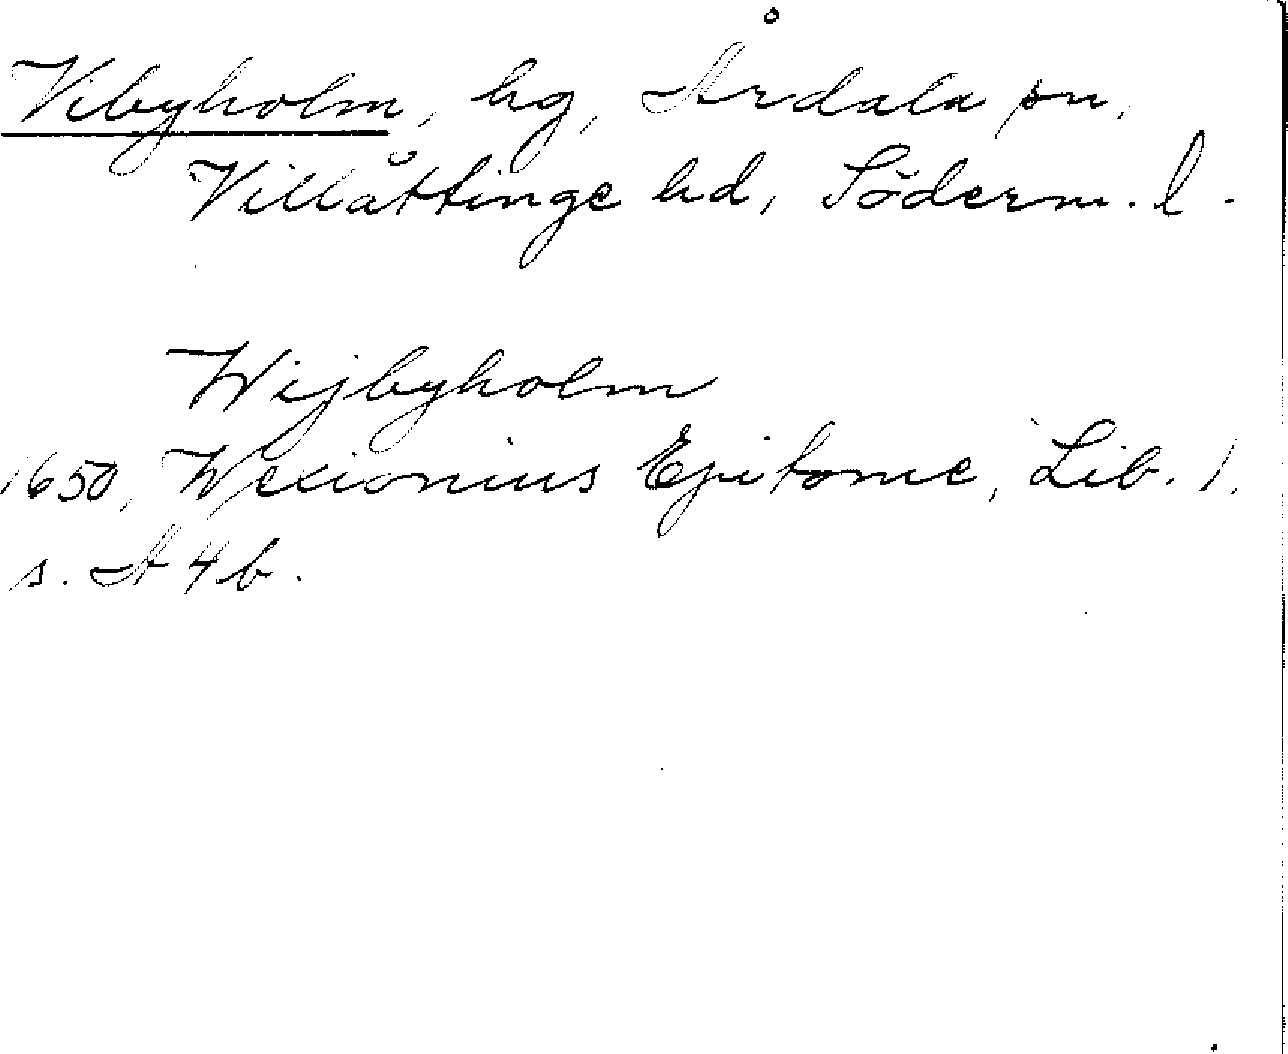 Vibyholm, hg, Årdala sn,
Villåttinge hd, Söderm. l.
Wijbyholm
1650, Wexionius Epitome, Lib. 1.
s. A 4 b.